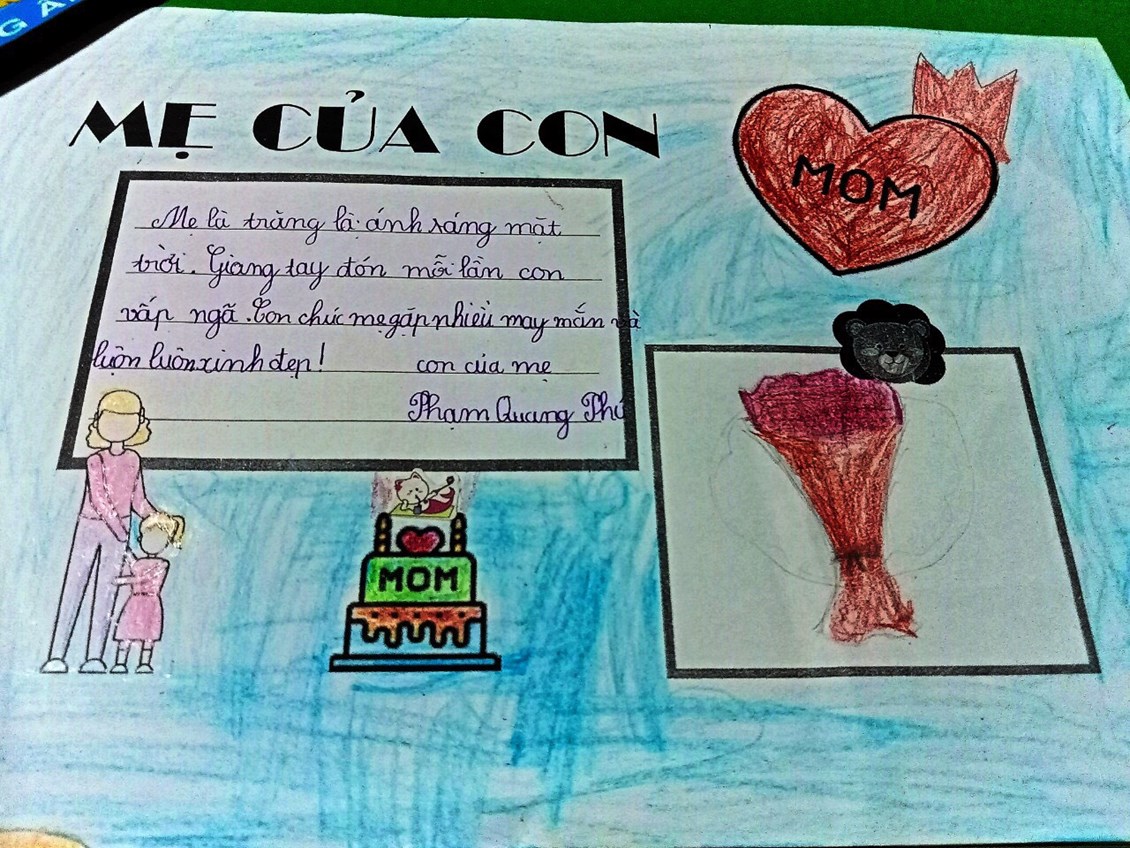 MẸ CỦA CON
MOM
Mẹ là trăng là ánh sáng mặt
trời. Giang tay đón mỗi lần con
vấp ngã. Con chúc mẹ gặp nhiều may mắn và
luôn luôn xinh đẹp!
con của mẹ
Phạm Quang Phú
MOM